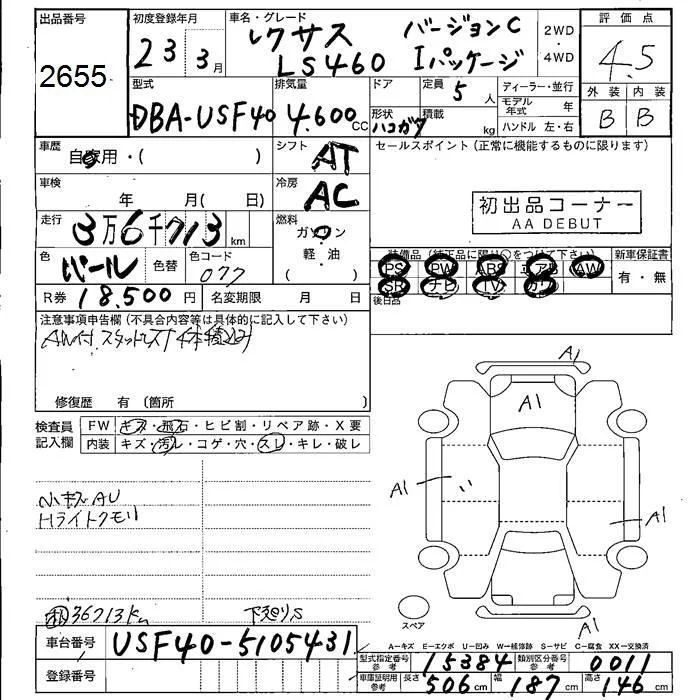 出品番号
2655
初度登録年月
23 3月
車名・グレード
レクサス バージョンC
LS460 Iパッケージ
2WD
・
4WD
評価点
4.5
外装 内装
B B
型式
DBA-USF40
排気量
4.600cc
ドア
形状
ハコガタ
定員
5人
積載
kg
ディーラー・並行
モデル年式 年
ハンドル 左・右
車歴
自家用・( )
シフト
AT
セールスポイント (正常に機能するものに限ります)
車検
年 月( 日)
冷房
AC
初出品コーナー
AA DEBUT
走行
3万6千713km
燃料
ガソリン
軽・油
( )
色
パール
色替
色コード
077
装備品 (純正品に限り○をつけて下さい)
PS PW ABS エアB AW
SR ナビ TV カワ
新車保証書
有・無
R券 18.500円
名変期限 月 日
後日品
注意事項申告欄 (不具合内容等は具体的に記入して下さい)
AW付スタッドレス4本積込み
修復歴 有 (箇所 )
検査員
記入欄
FW キズ・飛石・ヒビ割・リペア跡・X要
内装 キズ・汚レ・コゲ・穴・スレ・キレ・破レ
小キズAU
Hライトクモリ
36713km
下廻りS
A1
A1
A1
A1
A1
スペア
車台番号
USF40-5105431
登録番号
A=キズ E=エクボ U=凹み W=補修跡 S=サビ C=腐食 XX=交換済
型式指定番号
参考
15384
類別区分番号
参考
0011
車庫証明用
参考
長さ 506cm 幅 187cm 高さ 146cm